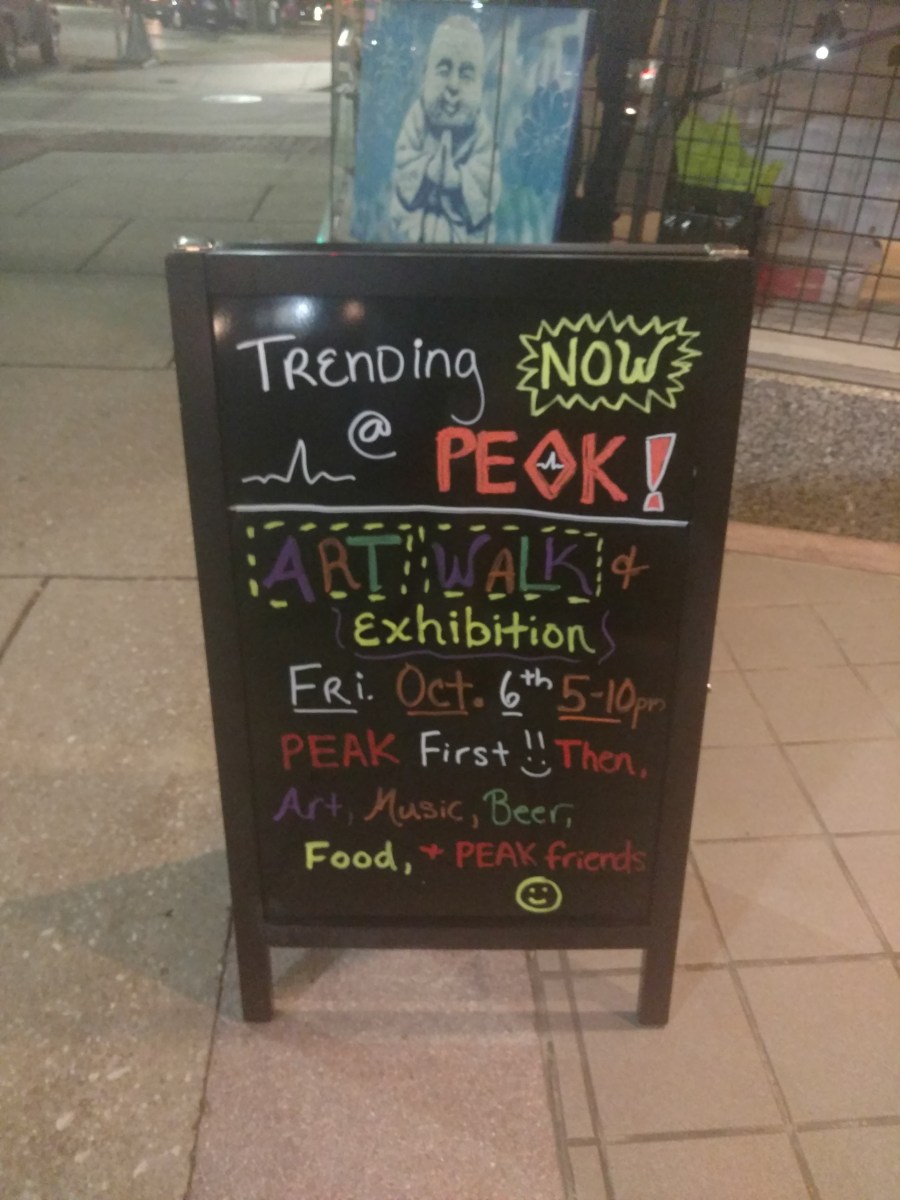 TRENDing NOW
@ PEAK!
ART WALK &
Exhibition
FRi. Oct. 6th 5-10pm
PEAK First !! Then,
Art, Music, Beer,
Food, + PEAK friends